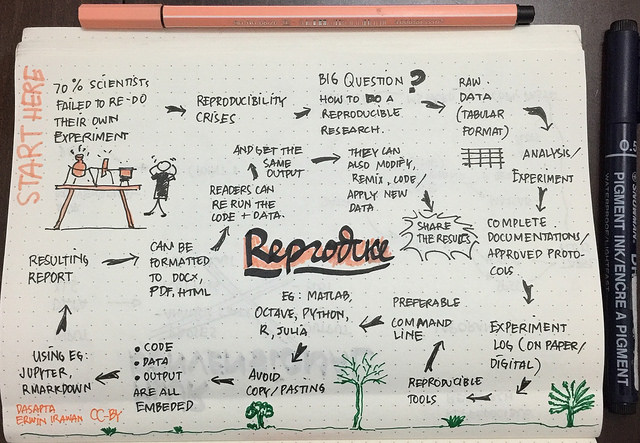 START HERE
70% SCIENTISTS
FAILED TO RE-DO
THEIR OWN
EXPERIMENT
REPRODUCIBILITY
CRISES
BIG QUESTION?
HOW TO DO A
REPRODUCIBLE
RESEARCH.
RAW
DATA
(TABULAR
FORMAT)
ANALYSIS/
EXPERIMENT
COMPLETE
DOCUMENTATIONS/
APPROVED PROTO-
COLS.
EXPERIMENT
LOG (ON PAPER/
DIGITAL)
REPRODUCIBLE
TOOLS
PREFERABLE
COMMAND
LINE
EG: MATLAB,
OCTAVE, PYTHON,
R, JULIA
AVOID
COPY/PASTING
• CODE
• DATA
• OUTPUT
ARE ALL
EMBEDED
USING EG:
JUPYTER,
RMARKDOWN
RESULTING
REPORT
CAN BE
FORMATTED
TO DOCX,
PDF, HTML
READERS CAN
RE RUN THE
CODE + DATA.
AND GET THE
SAME
OUTPUT
THEY CAN
ALSO MODIFY,
REMIX, CODE/
APPLY NEW
DATA
SHARE
THE RESULTS
Reproduce
DASAPTA
ERWIN IRAWAN
CC-BY
PIGMENT INK/ENCRE A PIGMENT